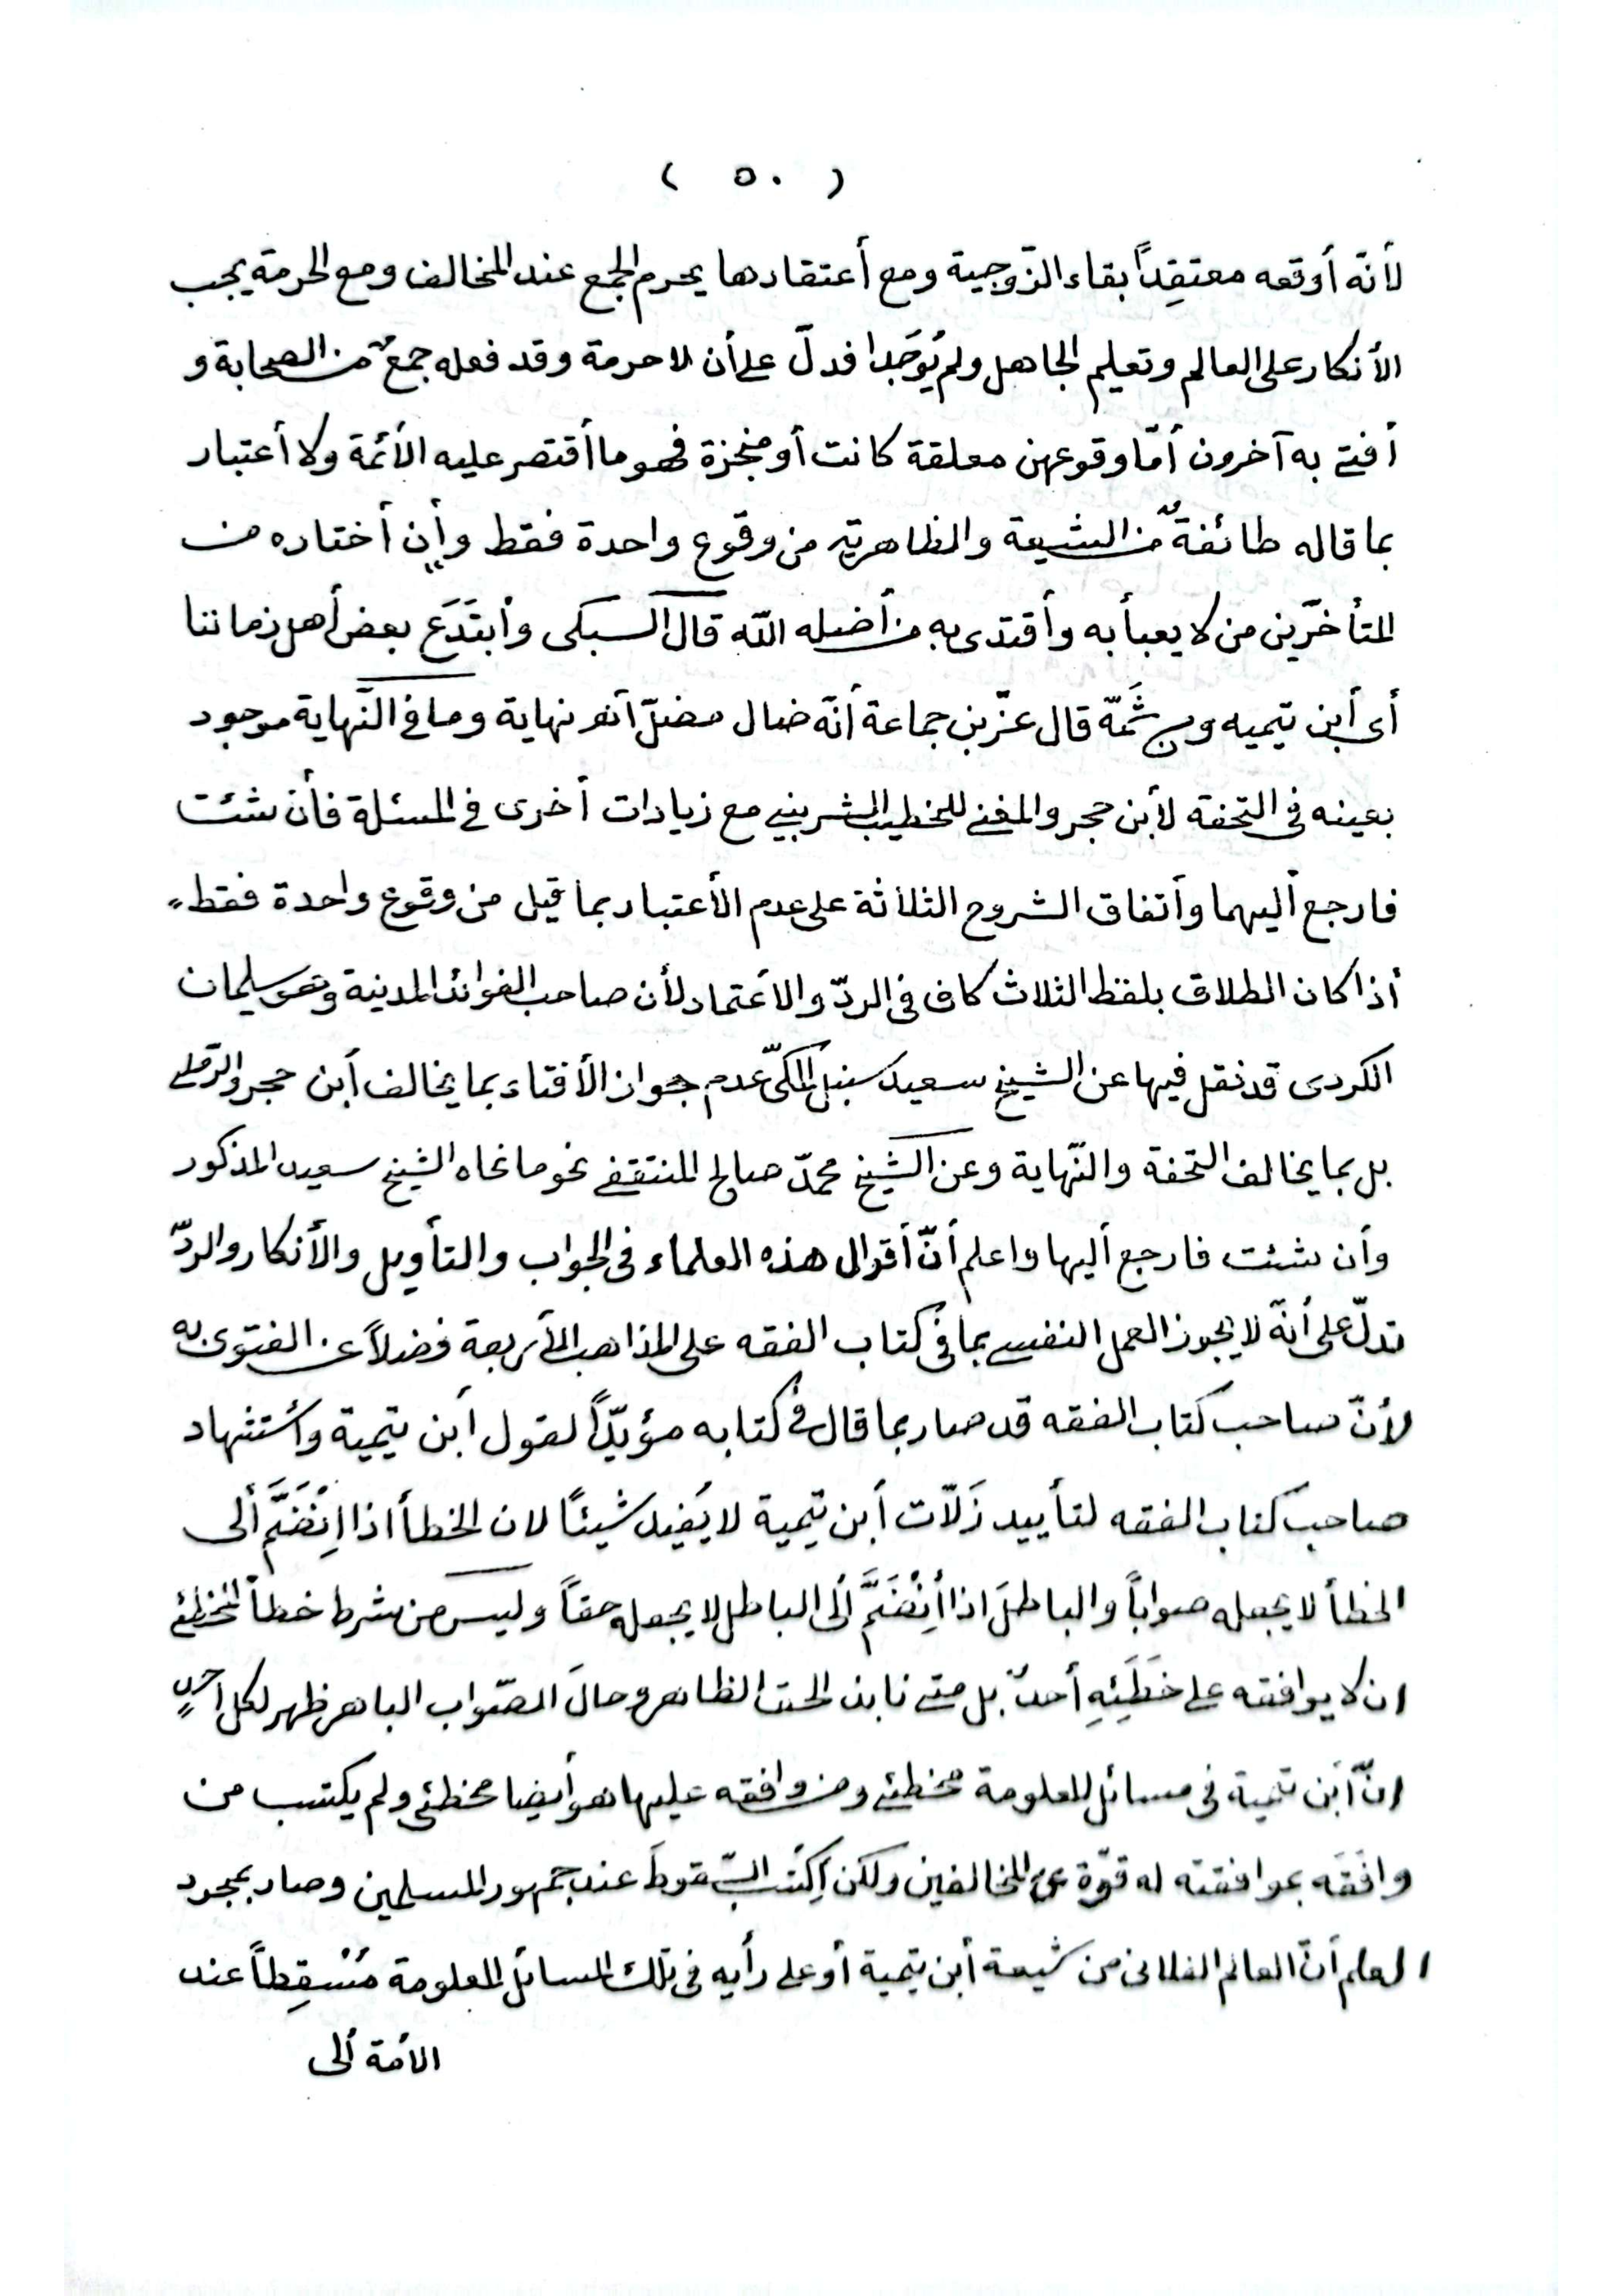 ( ٥٠ )
لأنّه أوقعه معتقِداً بقاء الزّوجية ومع أعتقادها يحرم الجمع عند المخالف ومع الحرمة يجب
الأنكار على العالم وتعليم الجاهل ولم يُوجَدا فدلّ على أن لا حرمة وقد فعله جمعٌ من الصحابة و
أفتى به آخرون أمّا وقوعهن معلقة كانت أو منجزة فهو ما أقتصر عليه الأئمة ولا أعتبار
بما قاله طائفةٌ من الشيعة والظاهرية من وقوع واحدة فقط وأن أختاره من
المتأخّرين من لا يعبأ به وأقتدى به من أضله اللّه قال السبكى وأبتَدَعَ بعض أهل زماننا
أى أبن تيميه ومن ثَمّه قال عزّ بن جماعة أنّه ضال مضلّ أنهر نهاية وما فى النّهاية موجود
بعينه فى التحفة لأبن حجر والمغنى للخطيب الشربينى مع زيادات أخرى فى المسئلة فأن شئت
فارجع أليهما وأتفاق الشروح الثلاثة على عدم الأعتبار بما قيل من وقوع واحدة فقط،
أذا كان الطلاق بلفظ الثلاث كاف فى الردّ والاعتماد لأن صاحب الفوائد المدينة وهو سليمان
الكردى قد نقل فيها عن الشيخ سعيد سنبل المكىّ عدم جواز الأفتاء بما يخالف أبن حجر والرّملى
بل بما يخالف التحفة والنّهاية وعن الشيخ محمدّ صالح المنتقفى نحو ما نحاه الشيخ سعيد المذكور
وأن شئت فارجع أليها واعلم أنّ أقوال هذه العلماء فى الجواب والتأويل والأنكار والردّ
تدلّ على أنّه لا يجوز العمل النفسى بما فى كتاب الفقه على المذاهب الأربعة فضلاً عن الفتوى به
لأنّ صاحب كتاب الفقه قد صار بما قال فى كتابه مؤيّداً لقول أبن تيمية وأستشهاد
صاحب كتاب الفقه لتأييد زَلّات أبن تيمية لا يُفيد شيئًا لان الخطأ اذا اِنْضَمَّ ألى
الخطأ لا يجعله صواباً والباطلَ اذا أِنْضَمَّ ألى الباطل لا يجعله حقاً وليس من شرط خطأ المخطئ
ان لا يوافقه على خَطَئِهِ أحدٌ بل متى نابذ الحق الظاهر وحالَ الصّواب الباهر ظهر لكل أحدٍ
انّ أبن تيمية فى مسائل المعلومة مخطئ ومن وافقه عليها هو أيضا مخطئ ولم يكتسب من
وافَقَه بموافقته له قوّة على المخالفين ولكن اِكتَسب السّقوطَ عند جمهور المسلمين وصار بمجرد
العلم أنّ العالم الفلانى من شيعة أبن تيمية أو على رأيه فى تلك المسائل المعلومة مُسْقِطاً عند
الأمة ألى